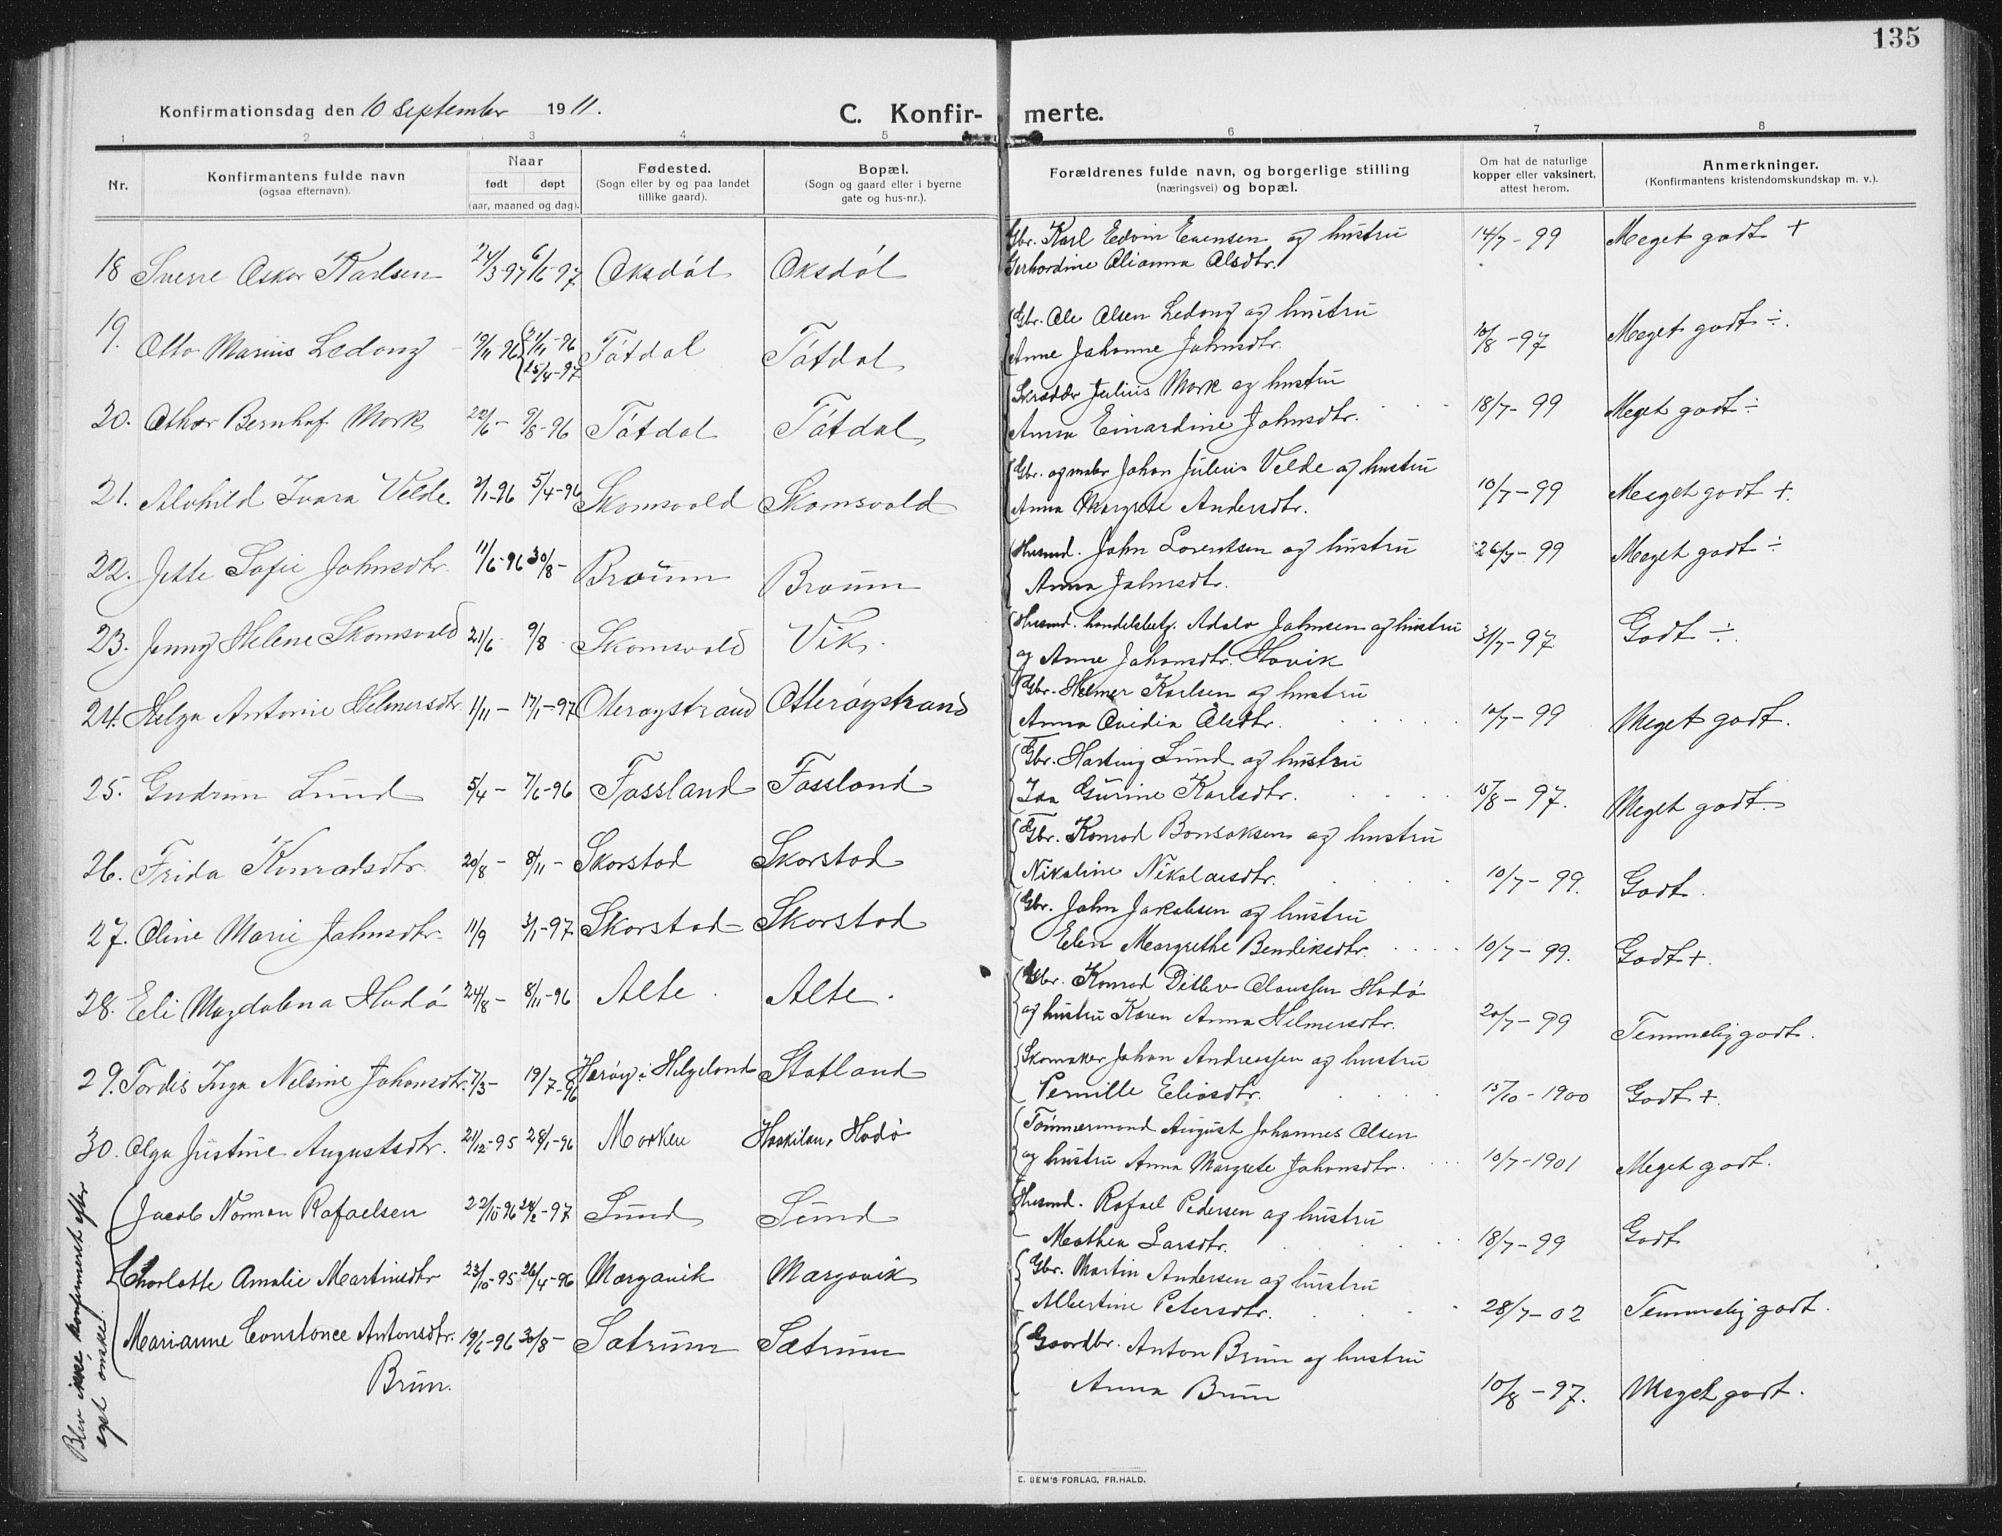 135
Konfirmationsdag den 10 September 1911.
C. Konfir- merte.
1 2 3 4 5 6 7 8
Nr.
Konfirmantens fulde navn
(ogsaa efternavn).
Naar
født døpt
(aar, maaned og dag).
Fødested.
(Sogn eller by og paa landet
tillike gaard).
Bopæl.
(Sogn og gaard eller i byerne
gate og hus-nr.).
Forældrenes fulde navn, og borgerlige stilling
(næringsvei) og bopæl.
Om hat de naturlige
kopper eller vaksinert,
attest herom.
Anmerkninger.
(Konfirmantens kristendomskundskap m. v.).
18 Sverre Oskar Karlsen 24/3-97 6/6-97 Oksdøl Oksdøl Gbr. Karl Edvin Evensen og hustru 14/7-99 Meget godt +
Gerhardine Olianna Olsdtr.
19. Otto Marius Ledang 19/11-96 21/11-96 Tøtdal Tøtdal Gbr. Ole Olsen Ledang og hustru 10/8-97 Meget godt ÷.
25/4-97 Anne Johanne Johnsdtr.
20. Othar Bernhof Mork 22/6- 9/8-96 Tøtdal Tøtdal Skrædder Julius Mork og hustru 18/7-99 Meget godt ÷
Anna Einardine Johnsdtr.
21. Alvhild Ivara Velde 2/1-96 5/4-96 Skomsvold Skomsvold Gbr. og maler Johan Julius Velde og hustru 10/7-99 Meget godt +.
Anna Margrete Andersdtr.
22. Jette Sofie Johnsdtr. 11/6-96 30/8- Braum Braum Husmd. John Lorentsen og hustru 26/7-99 Meget godt ÷
Anna Johnsdtr.
23. Jenny Helene Skomsvold 21/6 9/8 Skomsvold Vik. Husmd. handelsbetj. Adolv Johnsen og hustru 31/7-97 Godt ÷.
og Anne Johansdtr. Hovik
24. Helga Antonie Helmersdtr. 1/11- 17/1-97 Oterøystrand Otterøystrand Gbr. Helmer Karlsen og hustru 10/7-99 Meget godt.
Anna Ovidia Olsdtr.
25. Gudrun Lund 5/4- 7/6-96 Fossland Fossland Gbr. Hartvig Lund og hustru 15/8-97. Meget godt.
Ida Gurine Karlsdtr.
26. Frida Konradsdtr. 20/8- 8/11- Skorstad Skorstad Gbr. Konrad Bonsaksen og hustru 10/7-99. Godt.
Nikoline Nikolaisdtr.
27. Oline Marie Johnsdtr. 11/9 3/1-97 Skorstad Skorstad Gbr. John Jakobsen og hustru 10/7-99. Godt +.
Elen Margrethe Bendiksdtr.
28. Eli Magdalena Hodø 24/8- 8/11-96 Alte. Alte. Gbr. Konrad Ditlev Claussen Hodø 20/7-99 Temmelig godt.
og hustru Karen Anna Helmersdtr.
29. Tordis Inga Nelsine Johansdtr. 7/3- 19/7-96 Herøy i Helgeland Statland Skomaker Johan Andreassen og hustru 15/10-1900 Godt +.
Pernille Eliasdtr.
30. Olga Justine Augustsdtr. 21/12-95 28/1-96 Morken Hodø Tømmermand August Johannes Olsen 10/7-1901 Meget godt.
og hustru Anna Margrete Johansdtr.
Blev ikke konfirmeret efter
eget ønske.
Jacob Norman Rafaelsen 22/10-96 24/2-97 Sund Sund Husmd. Rafael Pedersen og hustru 18/7-99 Godt
Mathea Larsdtr.
Charlotte Amalie Martinsdtr 23/10-95 26/4-96 Margavik Margavik Gbr. Martin Andersen og hustru 28/7-02 Temmelig godt.
Albertine Petersdtr.
Marianne Constance Antonsdtr. 19/6-96 30/8- Sætrum Sætrum Gaardbr. Anton Brun og hustru 10/8-97. Meget godt.
Brun. Anna Brun
E. SEM'S FORLAG, FR.HALD.